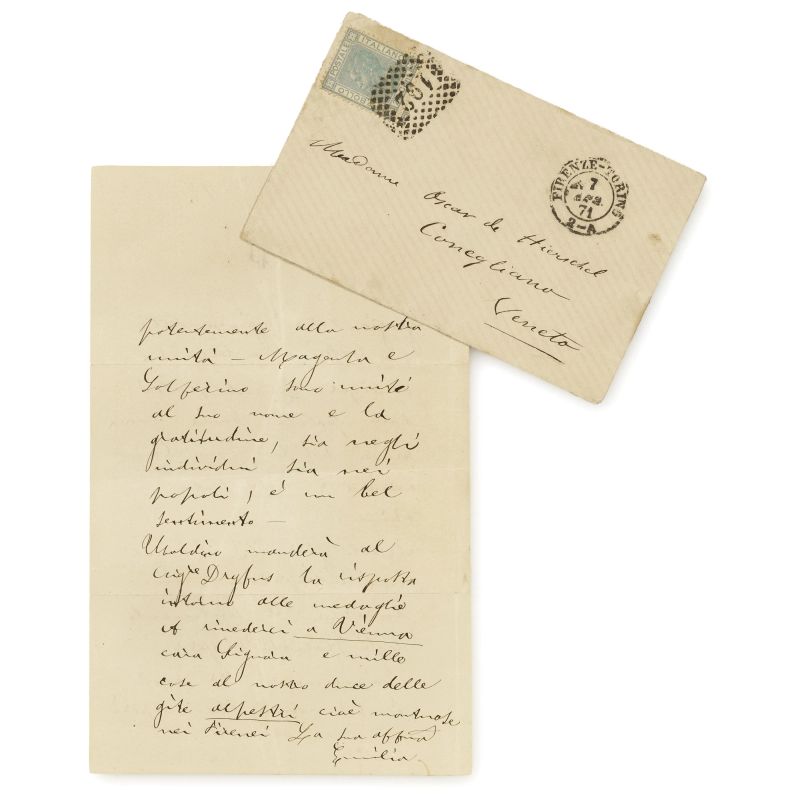 POSTALE ITALIANO
BOLLO
189
FIRENZE-TORINO
7
APR
71
2-A
Madame Oscar de Hierschel
Conegliano
Veneto
potentemente alla nostra
unità – Magenta e
Solferino sono uniti
al suo nome e la
gratitudine, sia negli
individui sia nei
popoli, è un bel
sentimento –
Ubaldino manderà al
Sigre Dryfus la risposta
intorno alle medaglie
A rivederci a Vienna
cara Signora e mille
cose al nostro duce delle
gite alpestri cioè montuose
nei Pirenei La sua affma
Emilia